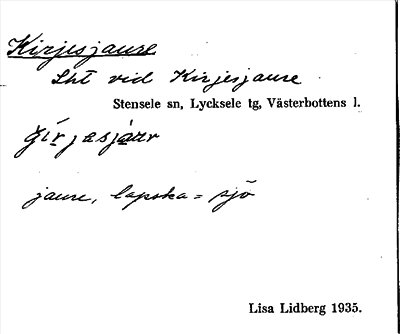 Kirjesjaure
Lht vid Kirjesjaure.
Stensele sn, Lycksele tg, Västerbottens l.
jaure, lapska = sjö
Lisa Lidberg 1935.